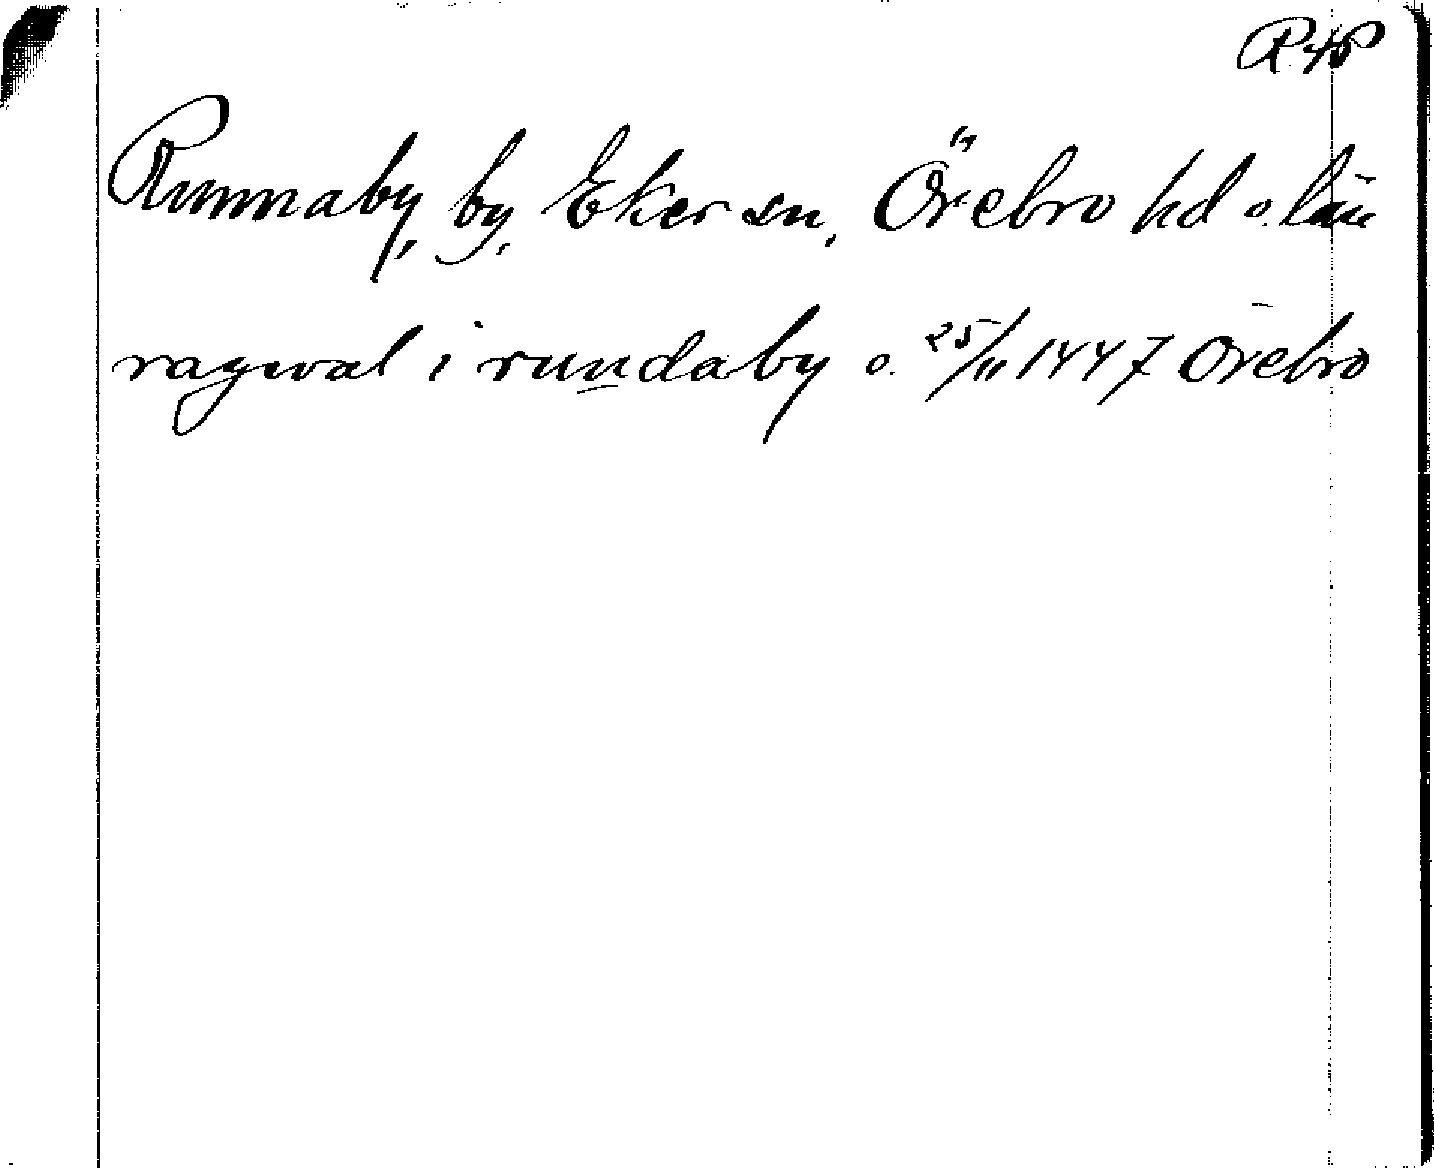 Runnaby, by, Eker sn, Örebro hd o. län
ragwal i rundaby o. 25/11 1447 Örebro